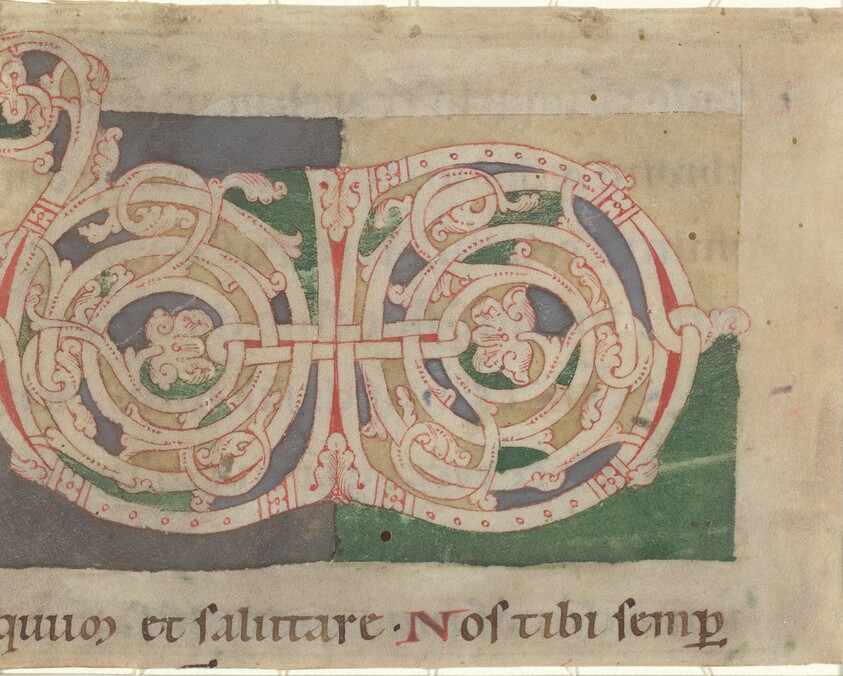 quum et ſalutare · Noſ tibi ſemꝑ